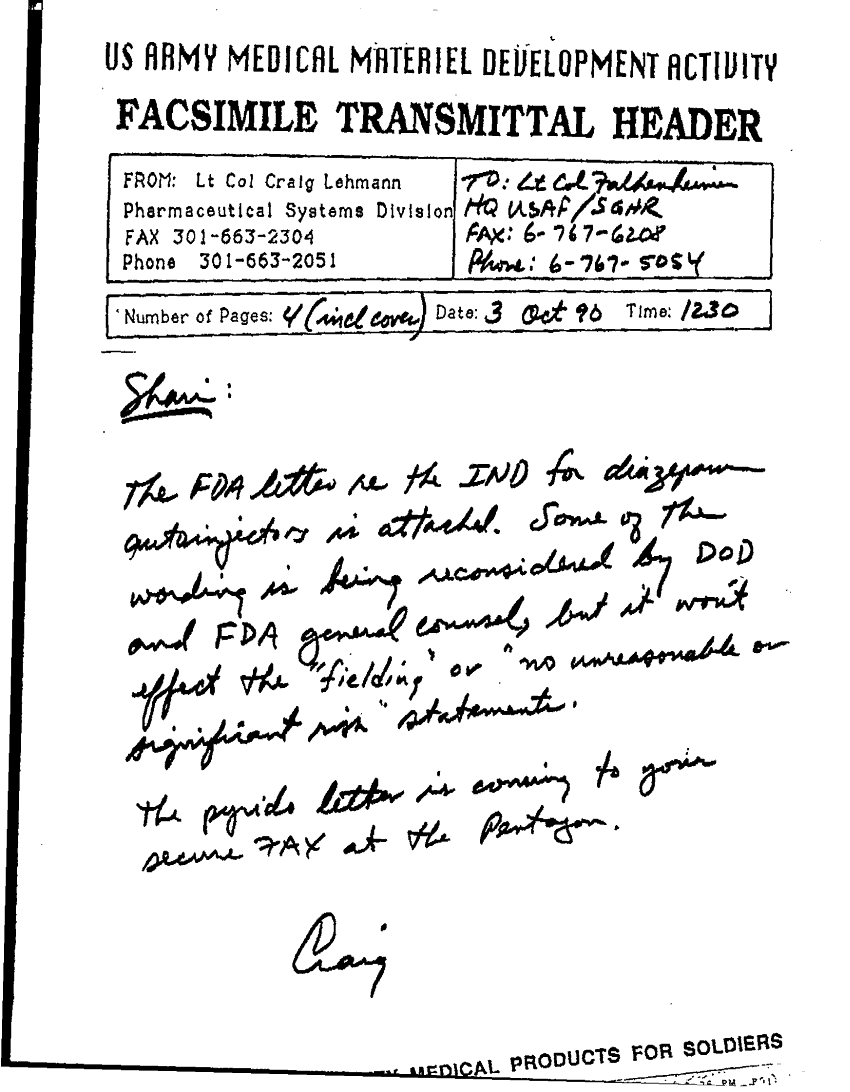 US ARMY MEDICAL MATERIEL DEVELOPMENT ACTIVITY
FACSIMILE TRANSMITTAL HEADER
FROM: Lt Col Craig Lehmann
Pharmaceutical Systems Division
FAX 301-663-2304
Phone 301-663-2051
TO: Lt Col Falkenheimer
HQ USAF/SGHR
FAX: 6-767-6208
Phone: 6-767-5054
Number of Pages: 4 (incl cover) Date: 3 Oct 90 Time: 1230
Shari:
The FDA letter re the IND for diazepam
autoinjectors is attached. Some of the
wording is being reconsidered by DOD
and FDA general counsel, but it won't
effect the "fielding" or "no unreasonable or
significant risk" statements.
The pyrido letter is coming to your
secure FAX at the Pentagon.
Craig
MEDICAL PRODUCTS FOR SOLDIERS